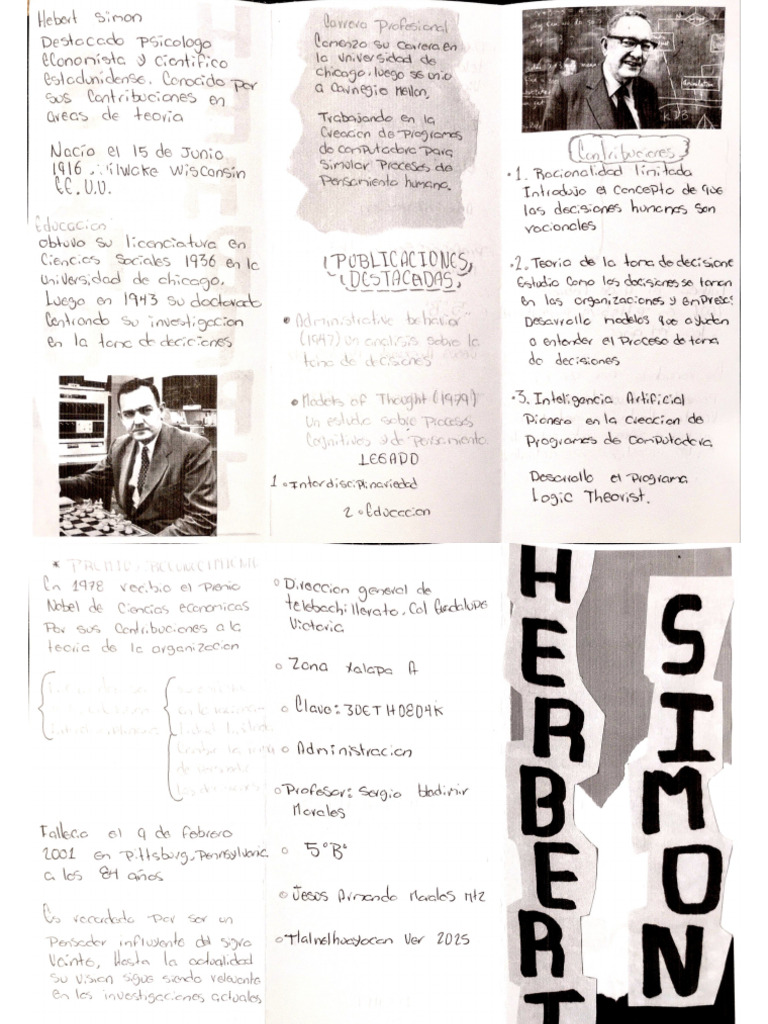 Hebert Simon
Destacado Psicologo
Economista y Cientifico
Estadunidense. Conocido por
sus Contribuciones en
areas de teoria
Nacio el 15 de Junio
1916 Wisconsin
EE.U.U.
Educacion
obtuvo su licenciatura en
Ciencias Sociales 1936 en la
Universidad de chicago.
Luego en 1943 su doctorado
Centrando su investigacion
en la toma de deciciones
Carrera Profesional
Comenzo su carrera en
la universidad de
chicago, luego se unio
a Carnegie Mellon.
Trabajando en la
Creacion de Programas
de computadora para
Simular Procesos de
Pensamiento humano.
PUBLICACIONES
DESTACADAS
• Administrative behavior
(1947) un analisis sobre la
toma de desiciones
• Models of Thought (1979)
Un estudio sobre Procesos
Cognitivos y de Pensamiento.
LEGADO
1 • Interdisciplinariedad
2 • Educacion
Contribuciones
• 1. Racionalidad limitada
Introdujo el concepto de que
las decisiones humanas son
racionales
• 2. Teoria de la toma de decisione
Estudio Como las decisiones se toman
en las organizaciones y empres
Desarrollo modelos que ayudan
a entender el Proceso de toma
de decisiones
• 3. Inteligencia Artificial
Pionero en la Creacion de
Programas de Computadora
Desarrollo el Programa
Logic Theorist.
En 1978 recibio el Premio
Nobel de Ciencias economicas
Por sus Contribuciones a la
teoria de la organizacion
Fallecio el 9 de febrero
2001 en Pittsburg, Pennsylvania.
a los 84 años
Es recordado Por ser un
Pensador influyente del siglo
Veinte, Hasta la actualidad
su vision sigue siendo relevante
en las investigaciones actuales
Direccion general de
telebachillerato. Col Guadalupe
Victoria
Zona xalapa A
Clave: 30ETH0804K
Administracion
Profesor: Sergio Vladimir
Morales
5°B°
Jesus Armando Morales Mtz
Tlalnelhuayocan Ver 2025
HERBERT
SIMON